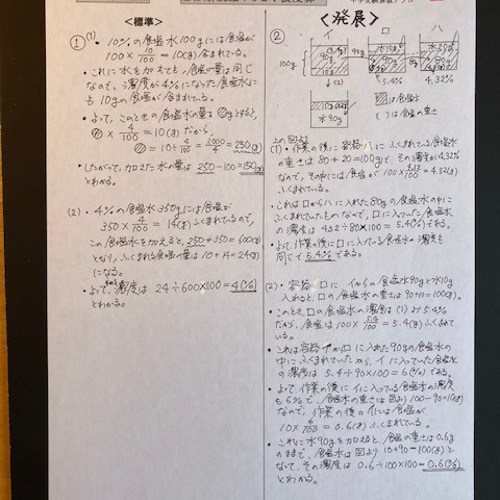 <標準>
① (1)
・10%の食塩水100gには食塩が
100×10/100=10(g)含まれている。
・これに水を加えても、食塩の量は同じ
なので、濃度が4%になった食塩水に
も10gの食塩が含まれている。
・よって、このときの食塩水の重さを
×4/100=10(g)だから
=10÷4/100=1000/4=250(g)
・したがって、加えた水の量は250-100=150(g)
とわかる。
(2)・4%の食塩水350gには食塩が
350×4/100=14(g)ふくまれているので、
この食塩水を加えると、250+350=600(g)
となり、ふくまれる食塩の量は10+14=24(g)
になる。
・よって、濃度は 24÷600×100=4(%)
とわかる。
<発展>
②
イ ロ ハ
100g
90g
80g
5.4%
4.32%
水90g
は食塩水
( )は食塩の重さ
上の図より
(1)・作業の後に容器ハにふくまれている食塩水
の重さは80+20=100gで、その濃度が4.32%
なので、その中には食塩が100×4.32/100=4.32(g)
ふくまれている。
・これはロからハに入れた80gの食塩水の中に
ふくまれていたものなので、ロに入っていた食塩水
の濃度は4.32÷80×100=5.4(%)である。
・よって、作業の後にロに入っている食塩水の濃度も
同じで5.4%である。
(2)・容器ロにイからの食塩水90gと水10g
入れると、ロの食塩水の重さは90+10=100(g)
・このとき、ロの食塩水の濃度は(1)より5.4%
だから、食塩は100×5.4/100=5.4(g)ふくまれて
いる。
・これは容器イからロに入れた90gの食塩水の
中にふくまれていたから、イに入っていた食塩水
の濃度は5.4÷90×100=6(%)である。
・よって、作業の後にイに入っている食塩水の濃度
も6%で、食塩水の重さは図より100-90=10(g)
なので、作業の後のイには食塩が
10×6/100=0.6(g)ふくまれている。
・これに水90gを加えると、食塩の重さは0.6g
のままで、食塩水は図より10+90=100(g)と
なって、その濃度は0.6÷100×100=0.6(%)
とわかる。